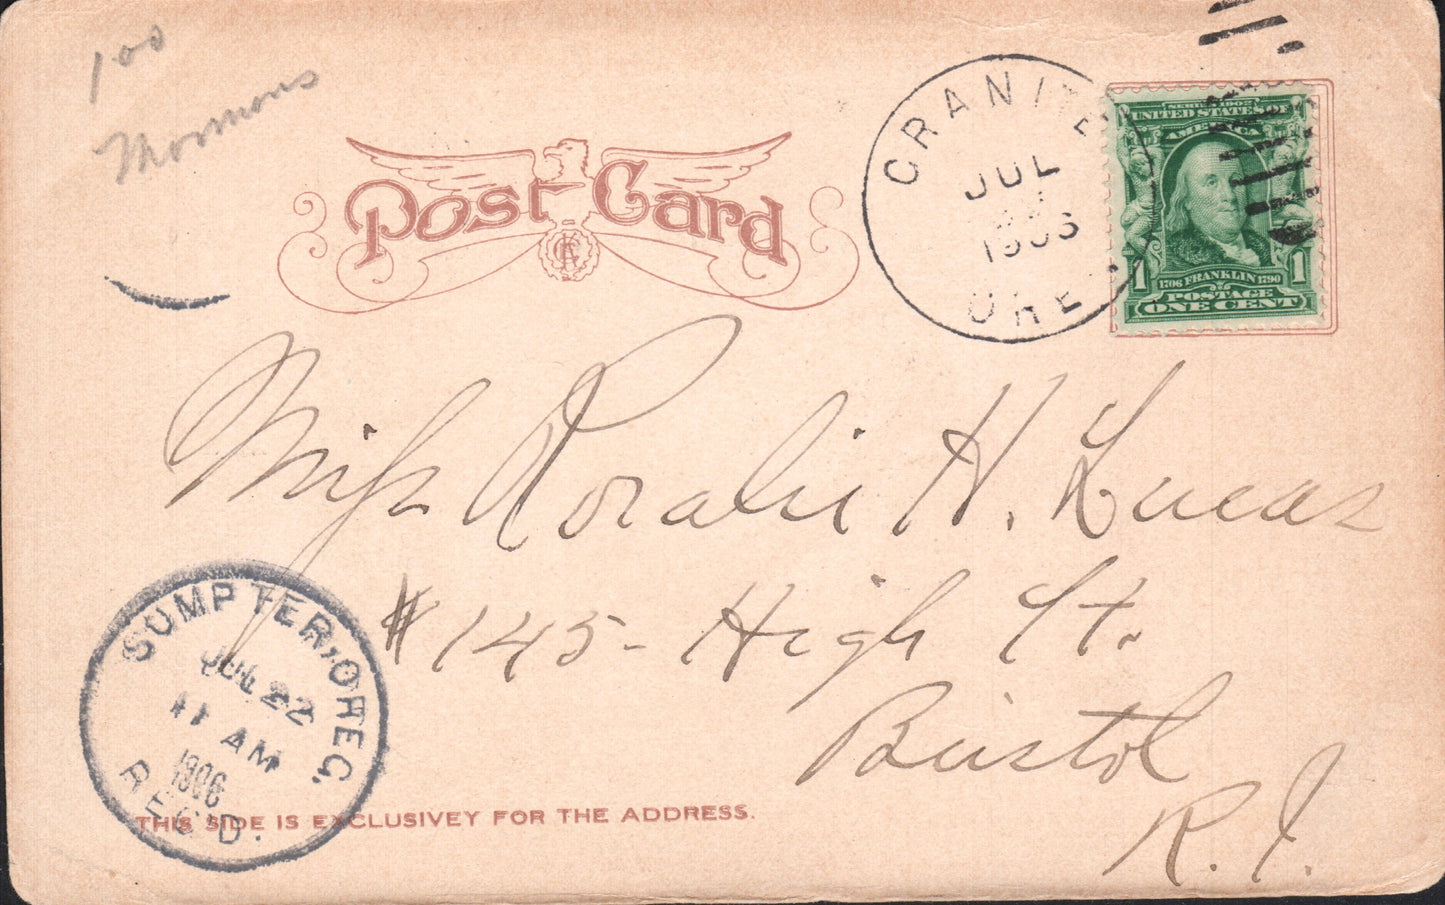 1 00
Mormons
Post Card
GRANITE
JUL
1906
ORE.
SERIES 1902
UNITED STATES OF
AMERICA
1 1706 FRANKLIN 1790 1
POSTAGE
ONE CENT
Miss Rosalie H. Lucas
#145- High St.
Bristol
R. I.
SUMPTER, OREG.
JUL 22
11 AM
1906
REC'D.
THIS SIDE IS EXCLUSIVEY FOR THE ADDRESS.